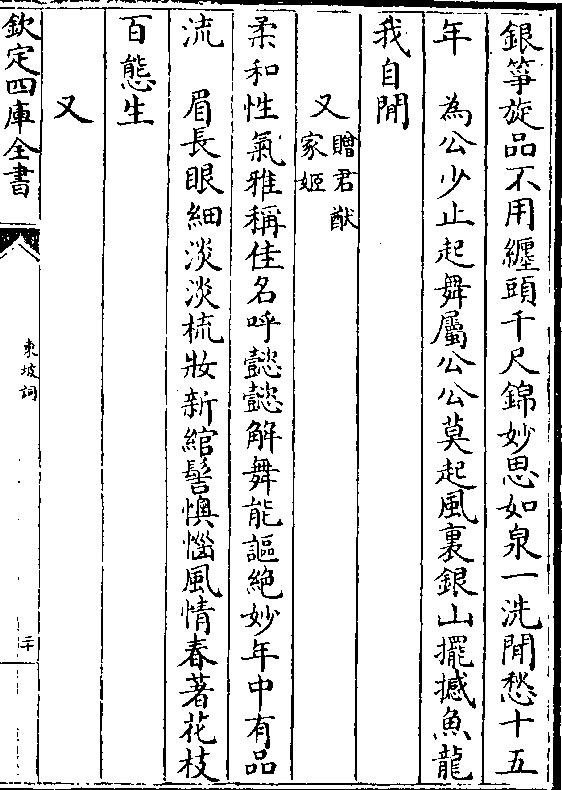 銀箏旋品不用纏頭千尺錦妙思如泉一洗閒愁十五
年　為公少止起舞屬公公莫起風裏銀山擺撼魚龍
我自閒
又贈君猷
家姬
柔和性氣雅稱佳名呼懿懿解舞能謳絶妙年中有品
流　眉長眼細淡淡梳妝新綰髻懊惱風情春著花枝
百態生
又
欽定四庫全書
東坡詞
二十